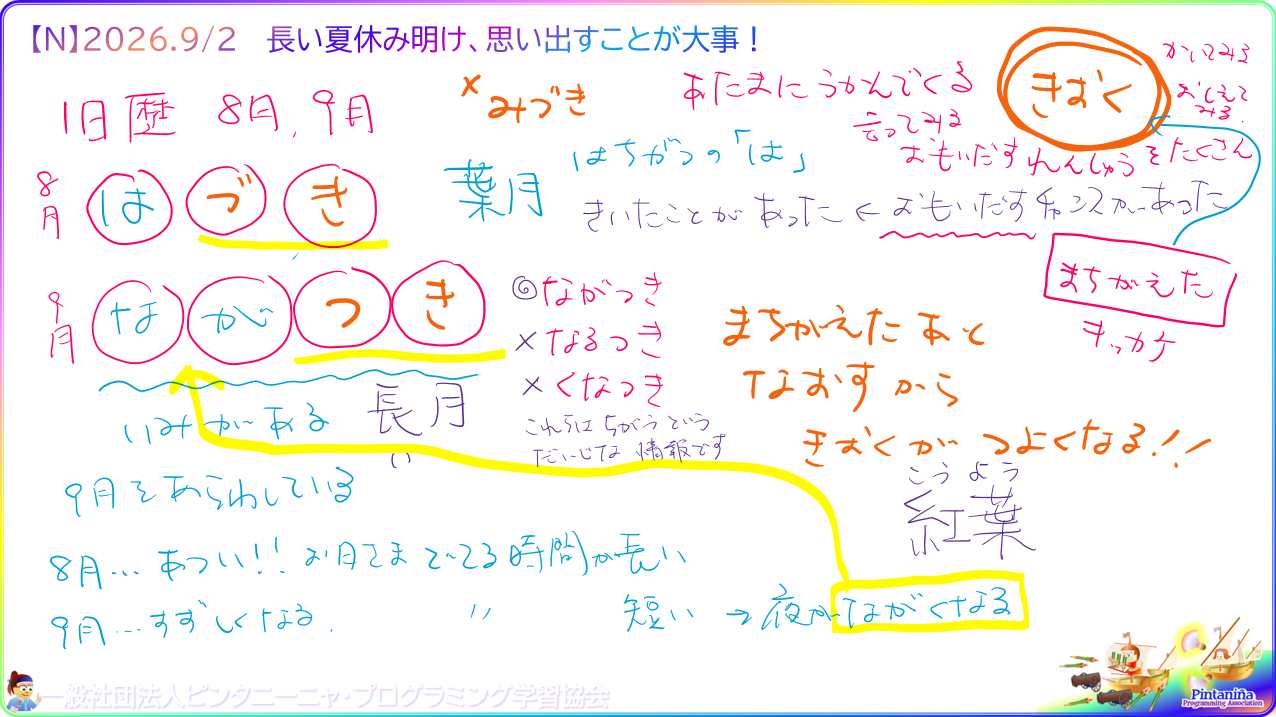 【N】2026.9/2 長い夏休み明け、思い出すことが大事！
旧暦 8月,9月
× みづき
あたまに うかんでくる
言ってみる
きおく
かいてみる
おしえてみる.
おもいだす れんしゅう をたくさん
8月 はづき
葉月
はちがつの「は」
きいたことが あった ← おもいだす チャンスが あった
まちがえた
キッカケ
9月 ながつき
◎ ながつき
× なるつき
× くなつき
これらは ちがう という
だいじな 情報です
まちがえた あと
なおす から
きおくが つよくなる!!
いみが ある
長月
い
9月を あらわしている
こうよう
紅葉
8月… あつい!! お日さま でてる 時間が 長い
9月… すずしくなる. 〃 短い → 夜が ながくなる
一般社団法人ピンタニーニャ・プログラミング学習協会
Pintaniña
Programming Association